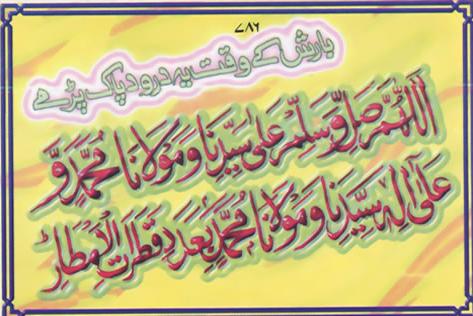 ۷۸۶
بارش کے وقت یہ درود پاک پڑھے
اَللّٰهُمَّ صَلِّ وَسَلِّمْ عَلٰی سَیِّدِنَا وَمَوْلَانَا مُحَمَّدٍ وَّ
عَلٰی اٰلِهٖ سَیِّدِنَا وَمَوْلَانَا مُحَمَّدٍ بِعَدَدِ قَطَرَاتِ الْاَمْطَارِ